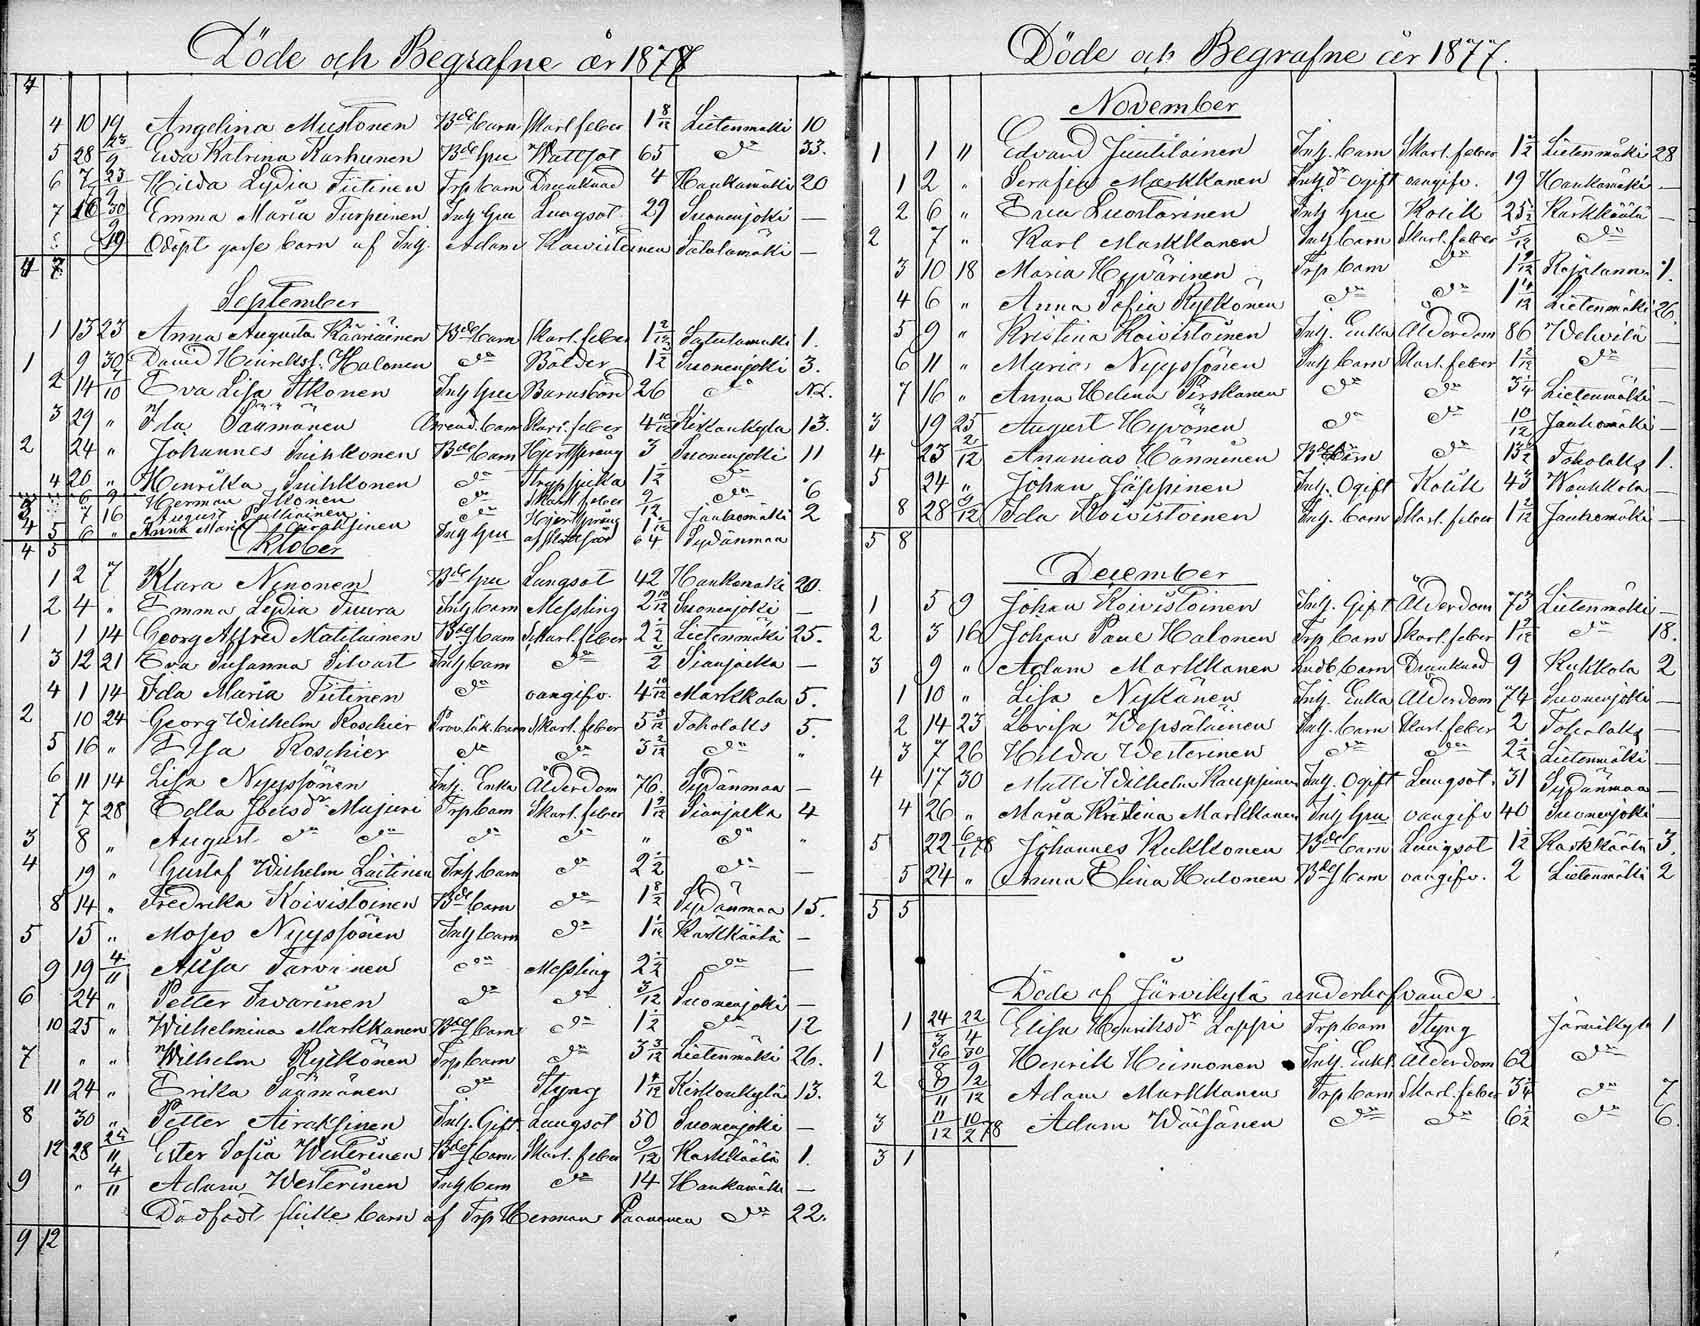 Döde och Begrafne år 1877
4
4 10 19 Angelina Mustonen Bde barn Skarl. feber 1 8/12 Lietenmäki 10
5 28 23/9 Eva Katrina Karhunen Bde hru Wattsot 65 do 33.
6 7 23 Hilda Lydia Tiitinen Trp barn Drunknad 4 Haukamäki 20
7 16 30/9 Emma Maria Turpeinen Inh hru Lungsot 29 Suonenjoki —
19 Odöpt gosse barn af Inh. Adam Koivistoinen Salalamäki —
4 7
September
1 13 23 Anna Augusta Kääriäinen Bde barn Skarl. feber 1 2/12 Salalamäki 1.
1 9 30 David Heinrikss. Halonen do Bölder 1 1/2 Suonenjoki 3.
2 14 7/10 Eva Lisa Itkonen Inh hru Barnsbörd 26 do
3 29 " Ida Säämänen Arrend. barn Skarl. feber 4 10/12 Kirkonkylä 13.
2 24 " Johannes Suihkonen Bde barn Hjertsprång 3 Suonenjoki 11
4 20 " Henrika Suihkonen do Strypsjuka 1/2 do "
6 9 Herman Itkonen do Skarl. feber 9/12 do 6
3 7 16 August Pulliainen do Hjertsprång 1 Jauhomäki 2
4 5 6 " Anna Maria Airaksinen Inh hru 64 Sydänmaa
4 5
Oktober
1 2 7 Klara Ninonen Bde hru Lungsot 42 Haukamäki 20.
2 4 " Emma Lydia Tuura Inh barn Messling 2 10/12 Suonenjoki —
1 1 14 Georg Alfred Matilainen Bde barn Skarl. feber 2 1/2 Lietenmäki 25.
3 12 21 Eva Susanna Silvast Inh barn do 1/2 Sianjalka —
4 1 14 Ida Maria Tiitinen do oangifv. 4 10/12 Markkala 5.
2 10 24 Georg Wilhelm Roschier Prov. läk. barn Skarl. feber 5 3/12 Toholaks 5.
5 16 " Elsa Roschier do do 3 2/12 do "
6 11 14 Lisa Nyyssönen Inh. Enka Ålderdom 76. Sydänmaa —
7 7 28 Edla Joelsdr Majuri Trp barn Skarl. feber 1 9/12 Sianjalka 4
3 8 " August do do do do " do "
4 19 " Gustaf Wilhelm Laitinen Inh barn do 2 1/2 do —
8 14 " Fredrika Koivistoinen Bde barn do 1 8/12 Sydänmaa 15.
5 15 " Moses Nyyssönen Inh barn do 1 1/12 Kärkkäälä —
9 19 4/11 Aliisa Tarvainen do Messling 2 1/2 do —
6 24 " Petter Tavarinen do do 3/12 Suonenjoki —
10 25 " Wilhelmina Markkanen Bde barn do 1 1/2 do 12
7 " " Wilhelm Rytkönen Trp barn do 3 3/12 Lietenmäki 26.
11 24 " Erika Säämänen do Styng 1 4/12 Kirkonkylä 13.
8 30 " Petter Airaksinen Inh. Gift Lungsot 50 Suonenjoki —
12 28 25/11 Ester Sofia Westerinen Bde barn Skarl. feber 9/12 Kärkkäälä 1.
9 " 4/11 Adam Westerinen Inh barn do 14 Haukamäki —
Dödfödt flicke barn af Trp Herman Paananen do 22.
9 12
Döde och Begrafne år 1877.
November
1 1 " Edvard Juutilainen Inh. barn Skarl. feber 1 1/2 Lietenmäki 28
1 2 " Serafia Markkanen Inh dr Ogift oangifv. 19 Haukamäki —
2 6 " Eva Luostarinen Inh hru Kolik 25 1/2 Kärkkäälä —
2 7 " Karl Markkanen Inh barn Skarl. feber 5/12 do —
3 10 18 Maria Hyvärinen Trp barn do 1 9/12 1.
4 6 " Anna Sofia Rytkönen do do 1 4/12 Lietenmäki 26.
5 9 " Kristina Koivistoinen Inh. Enka Ålderdom 86 Wehvilä —
6 11 " Maria Nyyssönen Inh barn Skarl. feber 1 2/12 do —
7 16 " Anna Helena Pirskanen do do 3 1/4 Lietenmäki —
3 19 25 August Hyvönen do do 10/12 Jauhomäki —
4 23 2/12 Ananias Hänninen Bde barn do 13 1/2 Toholaks 1.
5 24 " Johan Jäppinen Inh. Ogift Kolik 43 Wankkola —
8 28 9/12 Ida Koivistoinen Inh. barn Skarl. feber 1 1/12 Jauhomäki —
5 8
December
1 5 9 Johan Koivistoinen Inh. Gift Ålderdom 73 Lietenmäki —
2 3 16 Johan Paul Halonen Trp barn Skarl. feber 1 9/12 do 18.
3 9 " Adam Markkanen Landb barn Drunknad 9 Rukkola 2
1 10 " Lisa Nykänen Inh. Enka Ålderdom 74 Suonenjoki —
2 14 23 Lovisa Wepsäläinen Inh. barn Skarl. feber 2 Toholaks —
3 7 26 Hilda Westerinen do do 2 1/2 Lietenmäki —
4 17 30 Matti Wilhelm Kauppinen Inh. Ogift Lungsot. 31 Sydänmaa —
4 26 " Maria Kristina Markkanen Inh hru oangifv 40 Suonenjoki —
5 22 6/1 78 Johannes Rukkonen Bde barn Lungsot 1 1/2 Kärkkäälä 3.
5 24 " Anna Elina Halonen Bde barn oangifv. 2 Lietenmäki 2
5 5
Döde af Järvikylä underhafvande.
1 24/3 22/4 Elisa Henriksdr Lappi Trp barn Styng Järvikylä 1
1 16/8 30/9 Henrik Hiimonen Inh. Enkl. Ålderdom 62 do
2 9/11 2/12 Adam Markkanen Trp barn Skarl. feber 3 1/4 do 7
3 11/12 10/2 78 Adam Wäisänen do do 6 1/2 do 6.
3 1